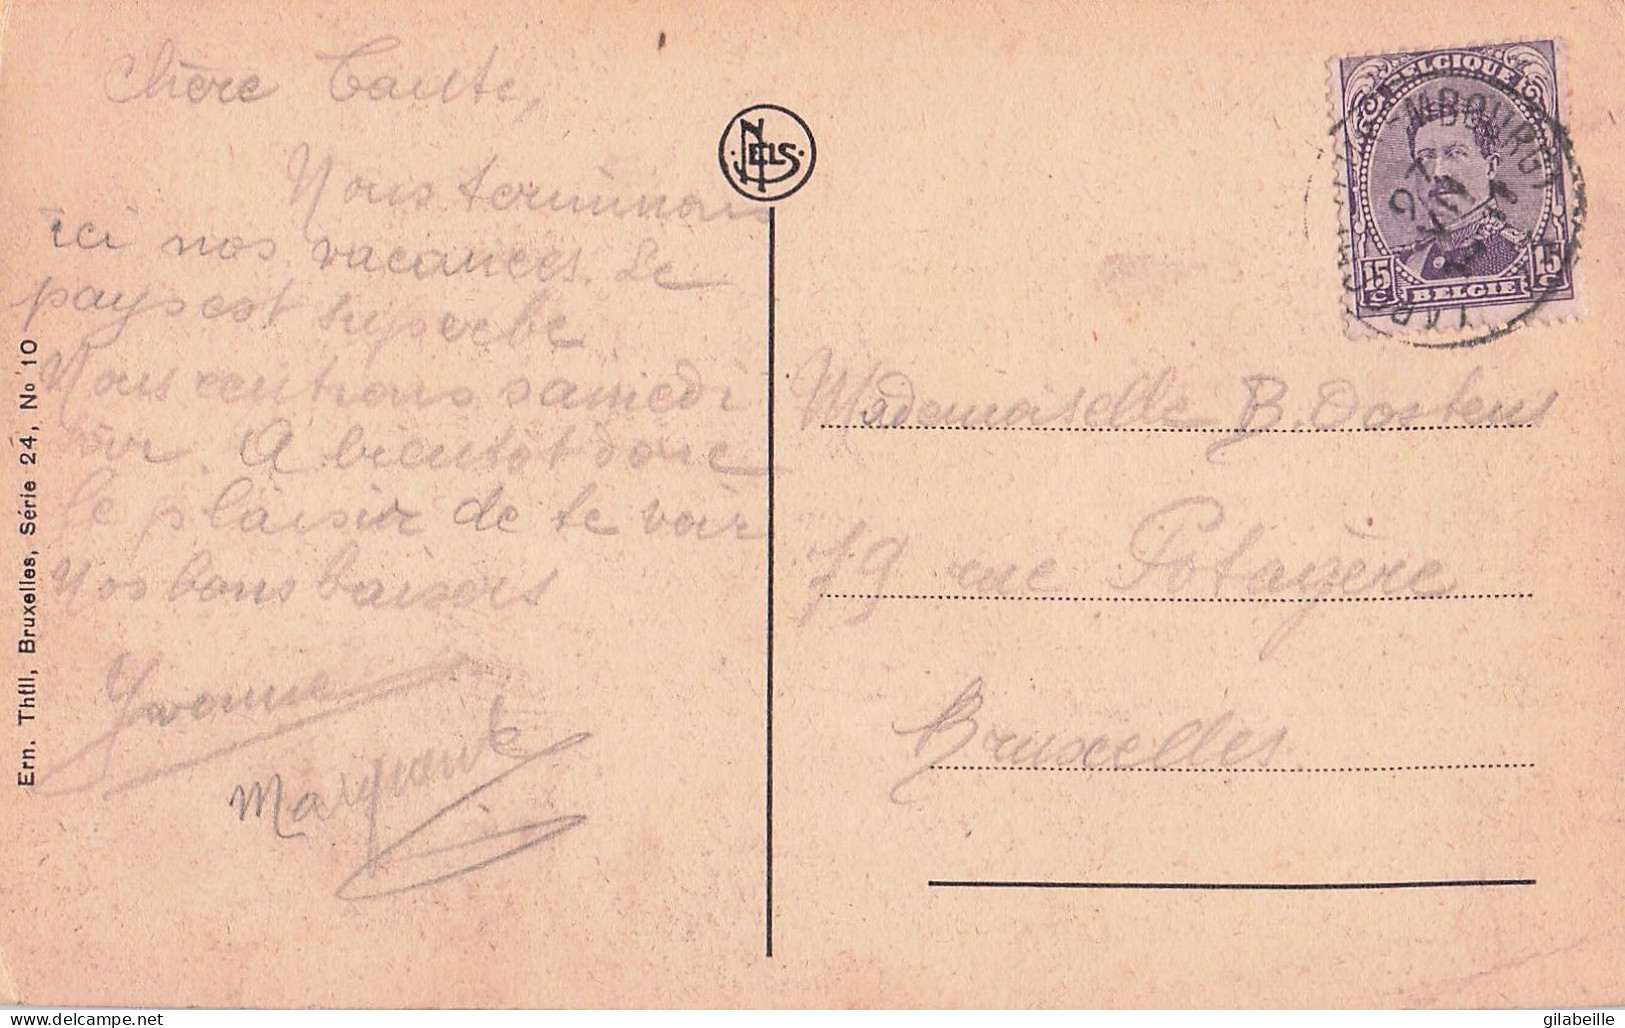 Chère Tante,
Nous terminons
ici nos vacances. Le
pays est superbe
Nous rentrons samedi
soir. A bientôt donc
le plaisir de te voir
Nos bons baisers
Yvonne
Marguerite
Ern. Thill, Bruxelles, Série 24, No 10
NELS
BELGIQUE
15 C
BELGIE
15 C
Mademoiselle B. Oostens
79 rue Potagère
Bruxelles
delcampe.net
gilabeille